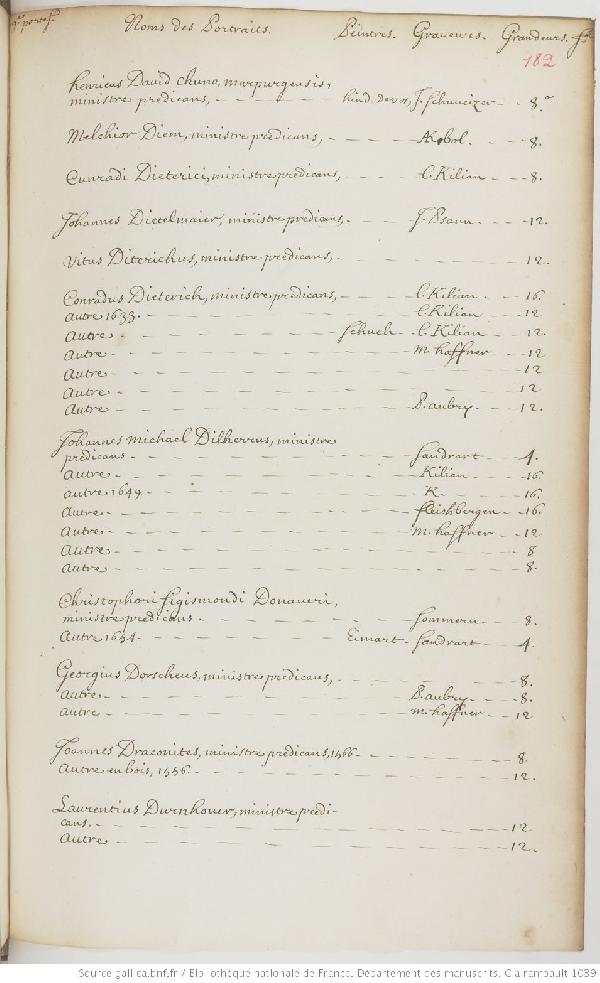 Noms des Portraits. Peintres. Graveures. Grandeurs.
182
henricus David chuno, marpurgensis,
ministre prédicans, hind. devos J. Schweizer 8.º
Melchior Diem, ministre prédicans, A. Kobol. 8.
Cunradi Dieterici, ministre prédicans, C. Kilian 8.
Johannes Dietelmaier, ministre prédicans, J. Psann 12.
Vitus Diterichus, ministre prédicans, 12.
Conradus Dieterich, ministre prédicans, C. Kilian 16.
Autre 1633. C. Kilian 12
Autre Schuch C. Kilian 12.
Autre M. haffner 12
Autre 12
Autre 12
Autre P. aubry 12.
Johannes Michael Dilherrus, ministre
prédicans Sandrart 4.
Autre Kilian 16.
autre 1649 K. 16.
Autre fleishbergen 16.
Autre M. haffner 12
Autre 8
Autre 8.
Christophori Sigismondi Donaueri,
ministre prédicans Sommern 8.
Autre 1654. Eimart Sandrart 4.
Georgius Dorscheus, ministre prédicans, 8.
Autre P. aubry 8.
Autre M. haffner 12
Joannes Draconites, ministre prédicans, 1566 8.
Autre en bois, 1556. 12.
Laurentius Durnhouer, ministre prédi-
cans. 12
Autre 12.
Source gallica.bnf.fr / Bibliothèque nationale de France. Département des manuscrits. Clairambault 1039